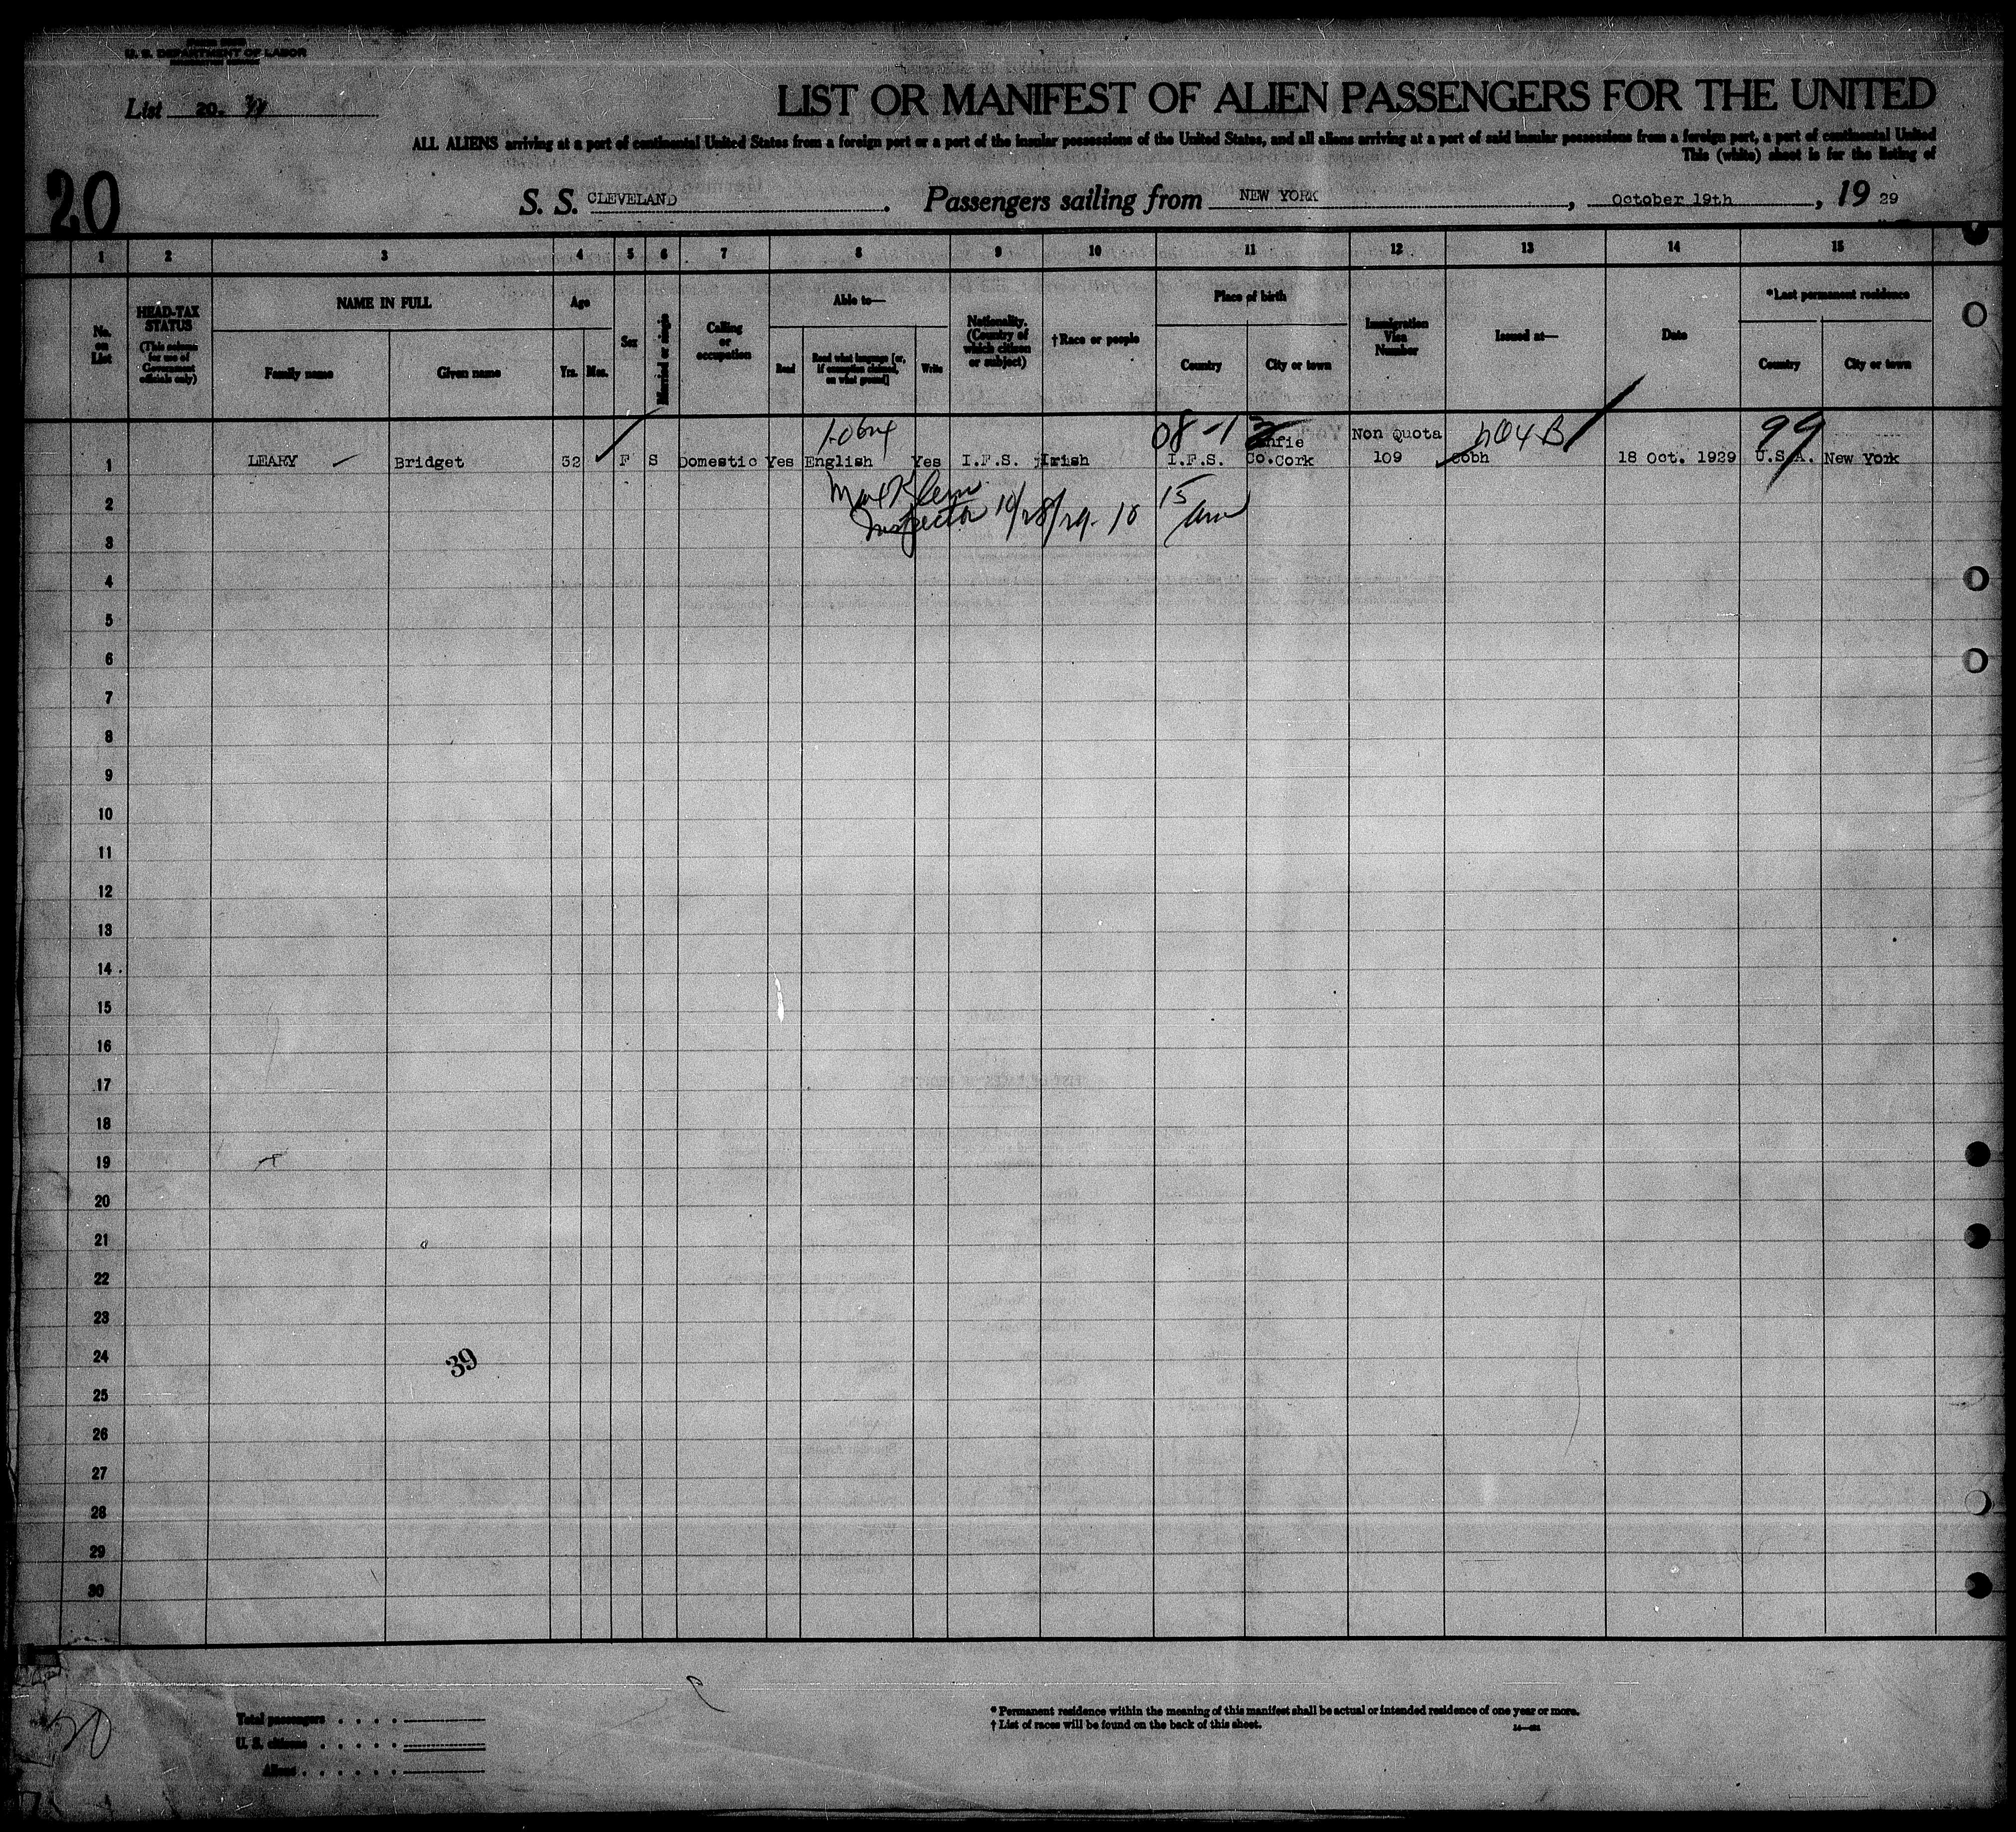 U. S. DEPARTMENT OF LABOR
List 20-
LIST OR MANIFEST OF ALIEN PASSENGERS FOR THE UNITED
ALL ALIENS arriving at a port of continental United States from a foreign port or a port of the insular possessions of the United States, and all aliens arriving at a port of said insular possessions from a foreign port, a port of continental United
This (white) sheet is for the listing of
20
S. S. CLEVELAND Passengers sailing from NEW YORK, October 19th, 19 29
1 2 3 4 5 6 7 8 9 10 11 12 13 14 15
No. on List
HEAD-TAX STATUS (This column for use of Government officials only)
NAME IN FULL
Family name Given name
Age
Yrs. Mos.
Sex
Married or single
Calling or occupation
Able to—
Read Read what language [or, if exemption claimed, on what ground] Write
Nationality. (Country of which citizen or subject)
†Race or people
Place of birth
Country City or town
Immigration Visa Number
Issued at—
Date
*Last permanent residence
Country City or town
08-13 Non Quota 404 B 99
1 LEARY Bridget 32 F S Domestic Yes English Yes I.F.S. Irish I.F.S. Co.Cork 109 Cobh 18 Oct. 1929 U.S.A. New York
Inspector 10/28/29- 10 15 am
2
3
4
5
6
7
8
9
10
11
12
13
14
15
16
17
18
19
20
21
22
23
24
39
25
26
27
28
29
30
20
Total passengers
U. S. citizens
Aliens
* Permanent residence within the meaning of this manifest shall be actual or intended residence of one year or more.
† List of races will be found on the back of this sheet.